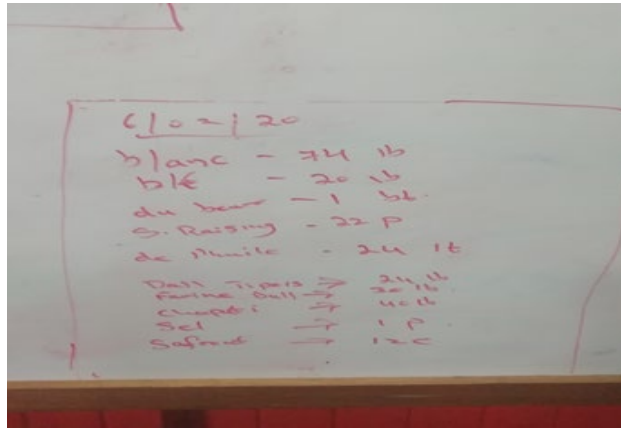 6/02/20
blanc - 74 lb
blé - 20 lb
du beur - 1 bt.
S. Raising - 22 P
de l'huile - 24 lt
Dall Tipois → 24 lb
Farine Dall → 20 lb
Chapati → 40 lb
Sel → 1 P
→ 12 c